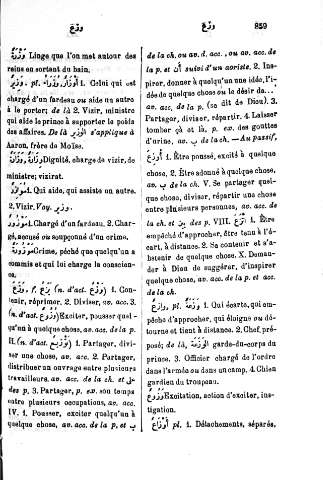 وزع
وزع
859
وِزْرَةٌ Linge que l'on met autour des
reins en sortant du bain.
وَزِيرٌ, pl. أَوْزَارٌ, وُزَرَآءُ 1. Celui qui est
chargé d'un fardeau ou aide un autre
à le porter; de là 2. Vizir, ministre
qui aide le prince à supporter le poids
des affaires. De là وزير s'applique à
Aaron, frère de Moïse.
وِزَارَةٌ, وَزَارَةٌ Dignité, charge de vizir, de
ministre; vizirat.
مُوَازِرٌ 1. Qui aide, qui assiste un autre.
2. Vizir, Voy. وزير.
مَوْزُورٌ 1. Chargé d'un fardeau. 2. Char-
gé, accusé ou soupçonné d'un crime.
مَوْزُورَةٌ Crime, péché que quelqu'un a
commis et qui lui charge la conscien-
ce.
وَزَعَ, f. يَزَعُ (n. d'act. وَزْعٌ) 1. Con-
tenir, réprimer. 2. Diviser, av. acc. 3.
(n. d'act. وُزُوعٌ) Exciter, pousser quel-
qu'un à quelque chose, av. acc. de la p.
II. (n. d'act. تَوْزِيعٌ) 1. Partager, divi-
ser une chose, av. acc. 2. Partager,
distribuer un ouvrage entre plusieurs
travailleurs, av. acc. de la ch. et على
des p. 3. Partager, p. ex. son temps
entre plusieurs occupations, av. acc.
IV. 1. Pousser, exciter quelqu'un à
quelque chose, av. acc. de la p. et ب
de la ch., ou av. d. acc., ou av. acc. de
la p. et أن suivi d'un aoriste. 2. Ins-
pirer, donner à quelqu'un une idée, l'i-
dée de quelque chose ou le désir de...
av. acc. de la p. (se dit de Dieu). 3.
Partager, diviser, répartir. 4. Laisser
tomber çà et là, p. ex. des gouttes
d'urine, av. ب de la ch. —Au passif,
أُوزِعَ 1. Être poussé, excité à quelque
chose, 2. Être adonné à quelque chose,
av. ب de la ch. V. Se partager quel-
que chose, diviser, répartir une chose
entre plusieurs personnes, av. acc. de
la ch. et بين des p. VIII. اتّزع 1. Être
empêché d'approcher, être tenu à l'é-
cart, à distance. 2. Se contenir et s'a-
bstenir de quelque chose. X. Deman-
der à Dieu de suggérer, d'inspirer
quelque chose, av. acc. de la p. et acc.
de la ch.
وَازِعٌ, pl. وَزَعَةٌ 1. Qui écarte, qui em-
pêche d'approcher, qui éloigne ou dé-
tourne et tient à distance. 2. Chef, pré-
posé; de là, الوَزَعَةُ garde-du-corps du
prince. 3. Officier chargé de l'ordre
dans l'armée ou dans un camp. 4. Chien
gardien du troupeau.
وَزُوعٌ Excitation, action d'exciter, ins-
tigation.
أَوْزَاعٌ pl. 1. Détachements, séparés,